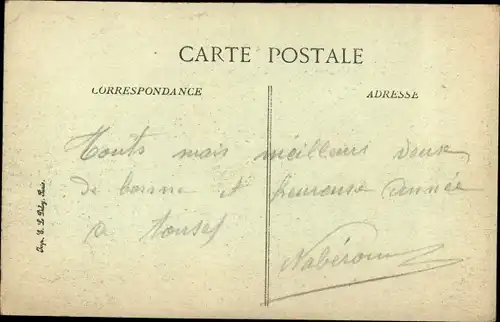 CARTE POSTALE
CORRESPONDANCE
ADRESSE
Touts mais meilleurs veux
de bonne et heureuse année
a tousef